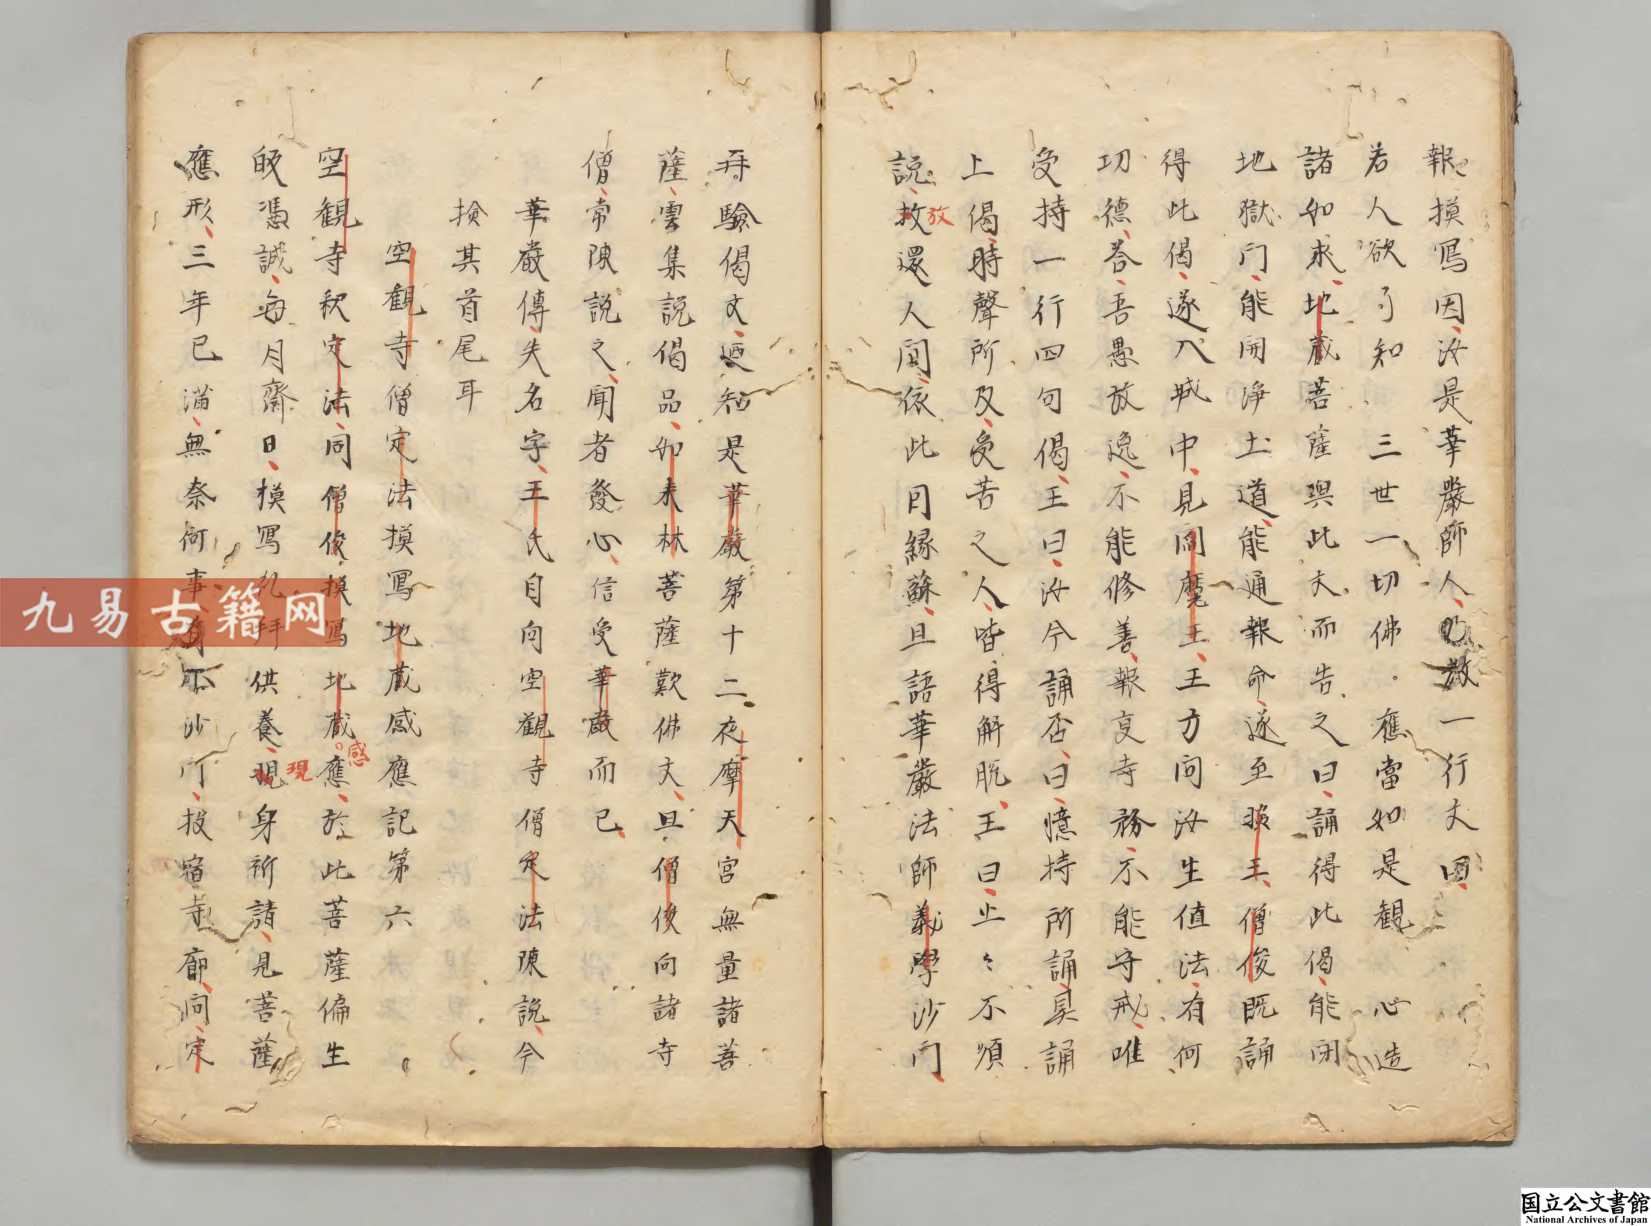 報摸寫因汝是華嚴師人乃教一行文圖
若人欲了知 三世一切佛 應當如是観 心造
諸如来地蔵菩薩與此文而告之曰誦得此偈能閉
地獄門能開浄土道能通報命遂至王僧俊既誦
得此偈遂入城中見閻魔王王方問汝生値法有何
切德荅吾愚放逸不能修善報寺務不能守戒唯
受持一行四句偈王曰汝今誦否曰憶持所誦具誦
上偈時聲所及受苦之人皆得解脱王曰止々不須
説放還人間依此因縁蘇且語華嚴法師義學沙門
放
再驗偈文廼知是華嚴第十二夜摩天宮無量諸菩
薩雲集説偈品如来林菩薩歎佛文且僧俊向諸寺
僧常陳説之聞者發心信受華嚴而已
華嚴傳失名字王氏自向空觀寺僧定法陳説今
撿其首尾耳
空觀寺僧定法摸寫地蔵感應記第六
空観寺釈定法同僧俊摸寫地蔵應於此菩薩偏生
感
皈憑誠毎月齋日摸寫礼拝供養現身祈請見菩薩
現
應形三年已満無奈何事有不沙門投宿寺廊問定
九易古籍网
国立公文書館
National Archives of Japan